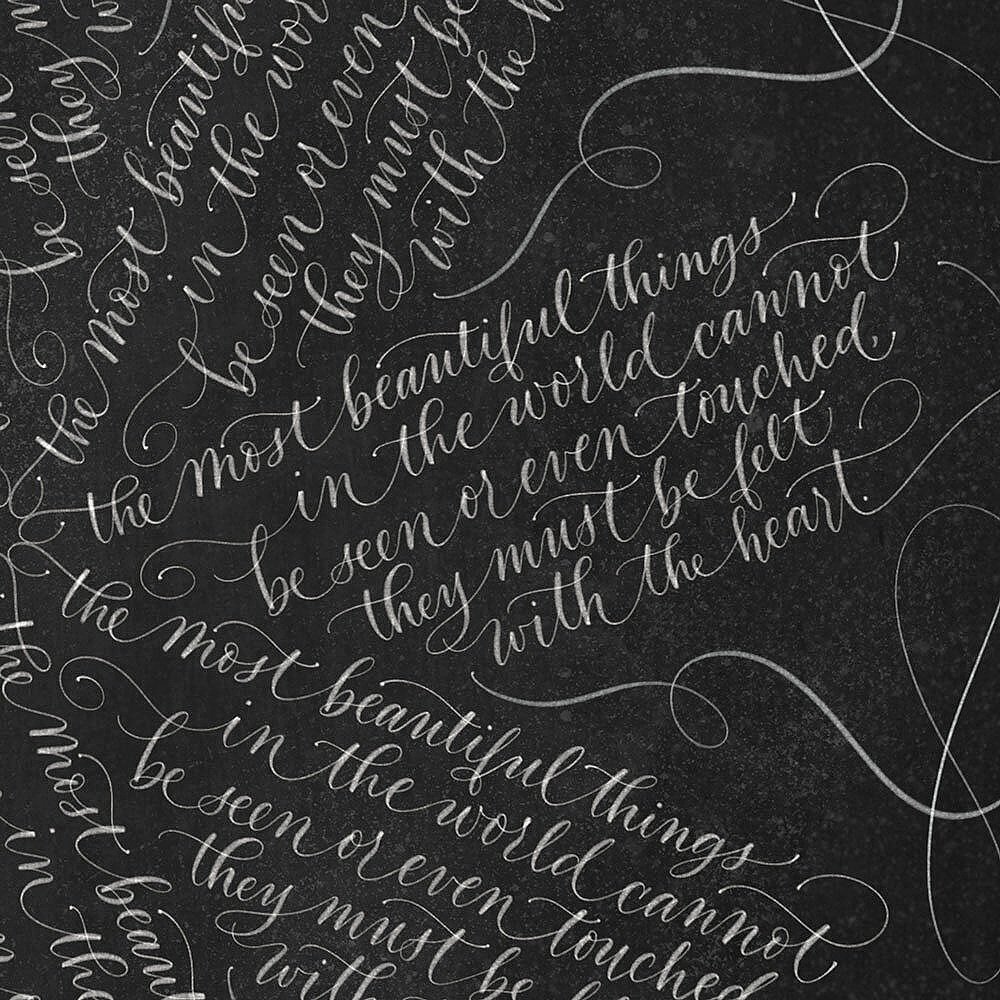 be seen
they
the most beautifu
in the wor
be seen or even
they must be
with the
the most beautiful things
in the world cannot
be seen or even touched,
they must be felt
with the heart.
the most beautiful things
in the world cannot
be seen or even touched
they must be
with
the most beau
in the